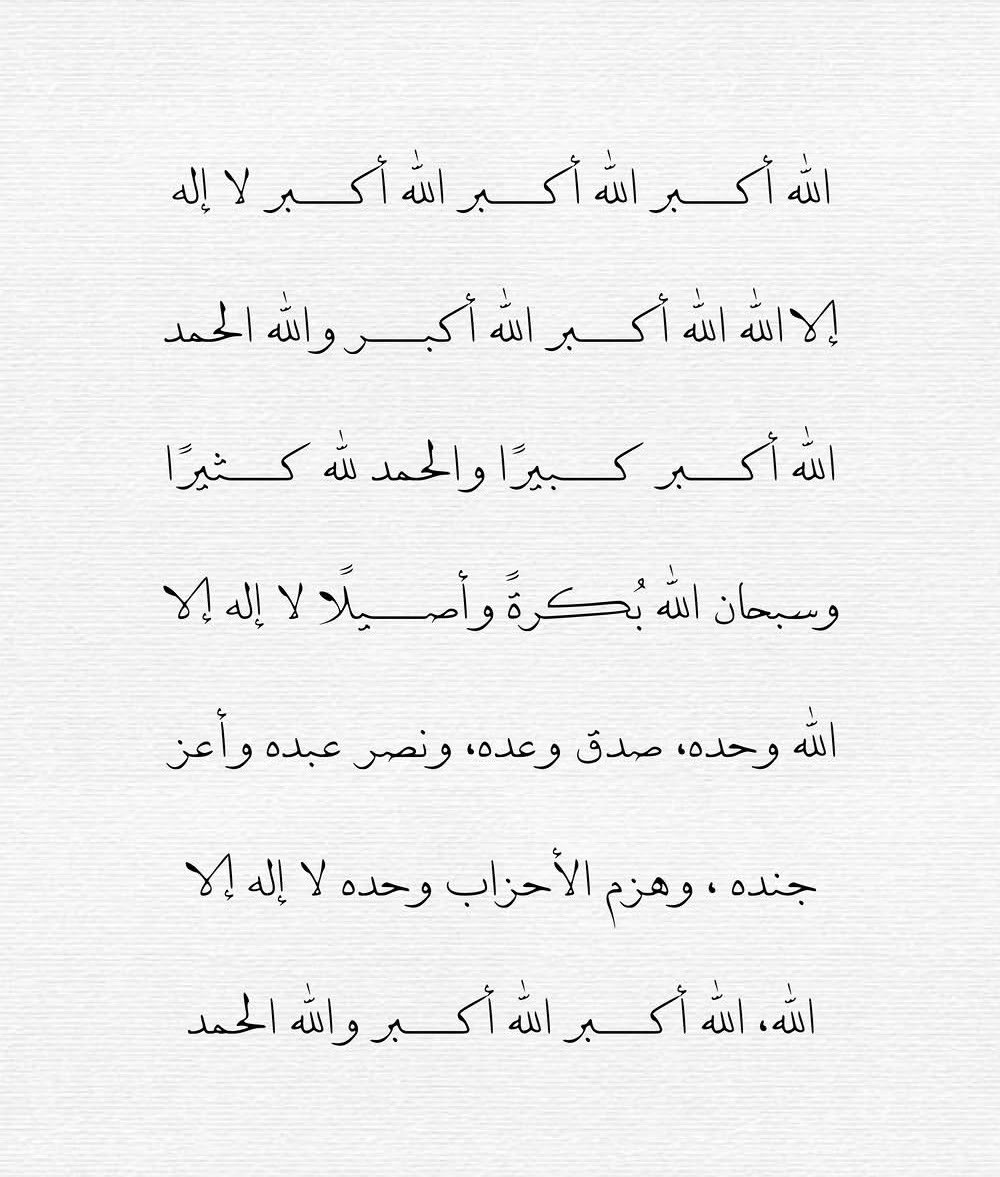 الله أكـــبر الله أكـــبر الله أكـــبر لا إله
إلا الله الله أكـــبر الله أكبـــر والله الحمد
الله أكـــبر كـــبيرًا والحمد لله كـــثيرًا
وسبحان الله بُكرةً وأصـــيلًا لا إله إلا
الله وحده، صدق وعده، ونصر عبده وأعز
جنده ، وهزم الأحزاب وحده لا إله إلا
الله، الله أكـــبر الله أكـــبر والله الحمد